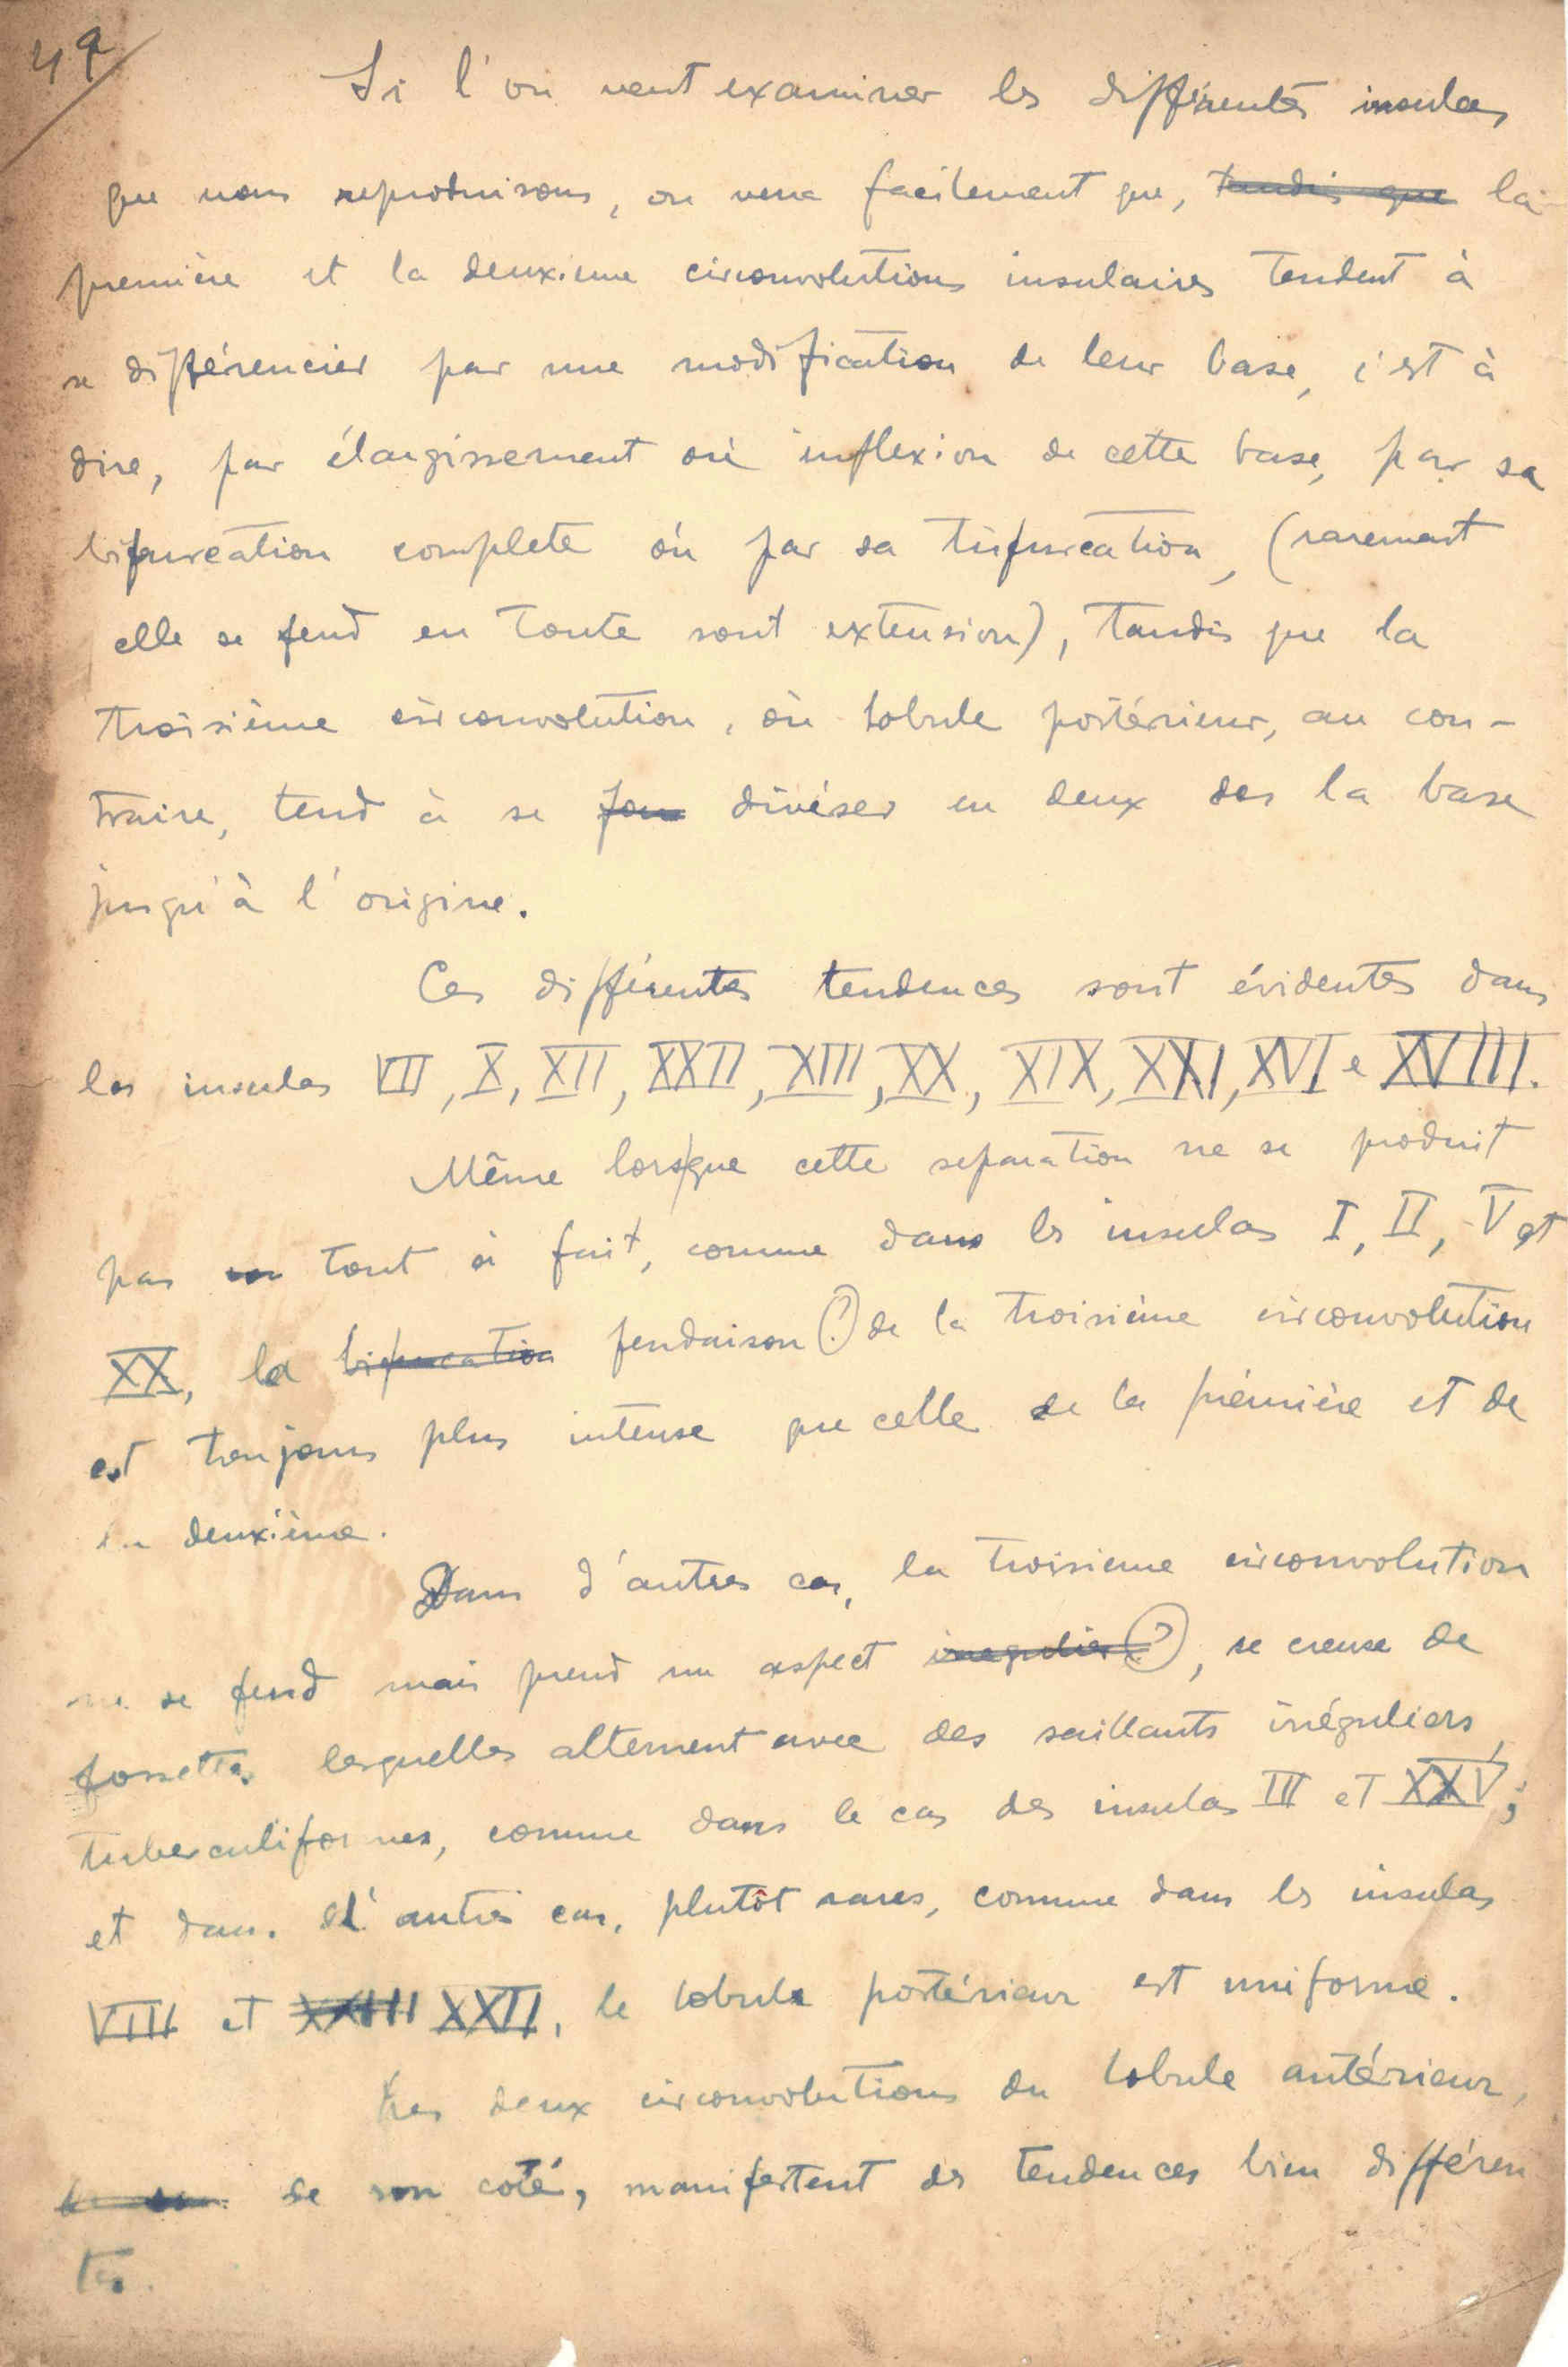 49
Si l'on veut examiner les différentes insulas
que nous reproduisons, on verra facilement que, tandis que la
première et la deuxieme circonvolutions insulaires tendent à
se différencier par une modification de leur base, c'est à
dire, par élargissement où inflexion de cette base, par sa
bifurcation complete où par sa trifurcation, (rarement
elle se fend en toute sont extension), tandis que la
troisième circonvolution, où lobule postérieur, au con-
traire, tend à se diviser en deux des la base
jusqu'à l'origine.
Ces différentes tendences sont évidentes dans
les insulas VII, X, XII, XXII, XIII, XX, XIX, XXI, XVI e XVIII.
Même lorsque cette separation ne se produit
pas tout à fait, comme dans les insulas I, II, V et
XX, la bifurcation fendaison (?) de la troisième circonvolution
est toujours plus intense que celle de la prémière et de
la deuxième.
Dans d'autres cas, la troisieme circonvolution
ne se fend mais prend un aspect irregulier (?), se creuse de
fossettes lesquelles alternent avec des saillants irréguliers,
tuberculiformes, comme dans le cas des insulas III et XXV;
et dans d'autres cas, plutôt rares, comme dans les insulas
VIII et XXIII XXII, le lobule postérieur est uniforme.
Les deux circonvolutions du lobule antérieur,
de son coté, manifestent des tendences bien différen
tes.